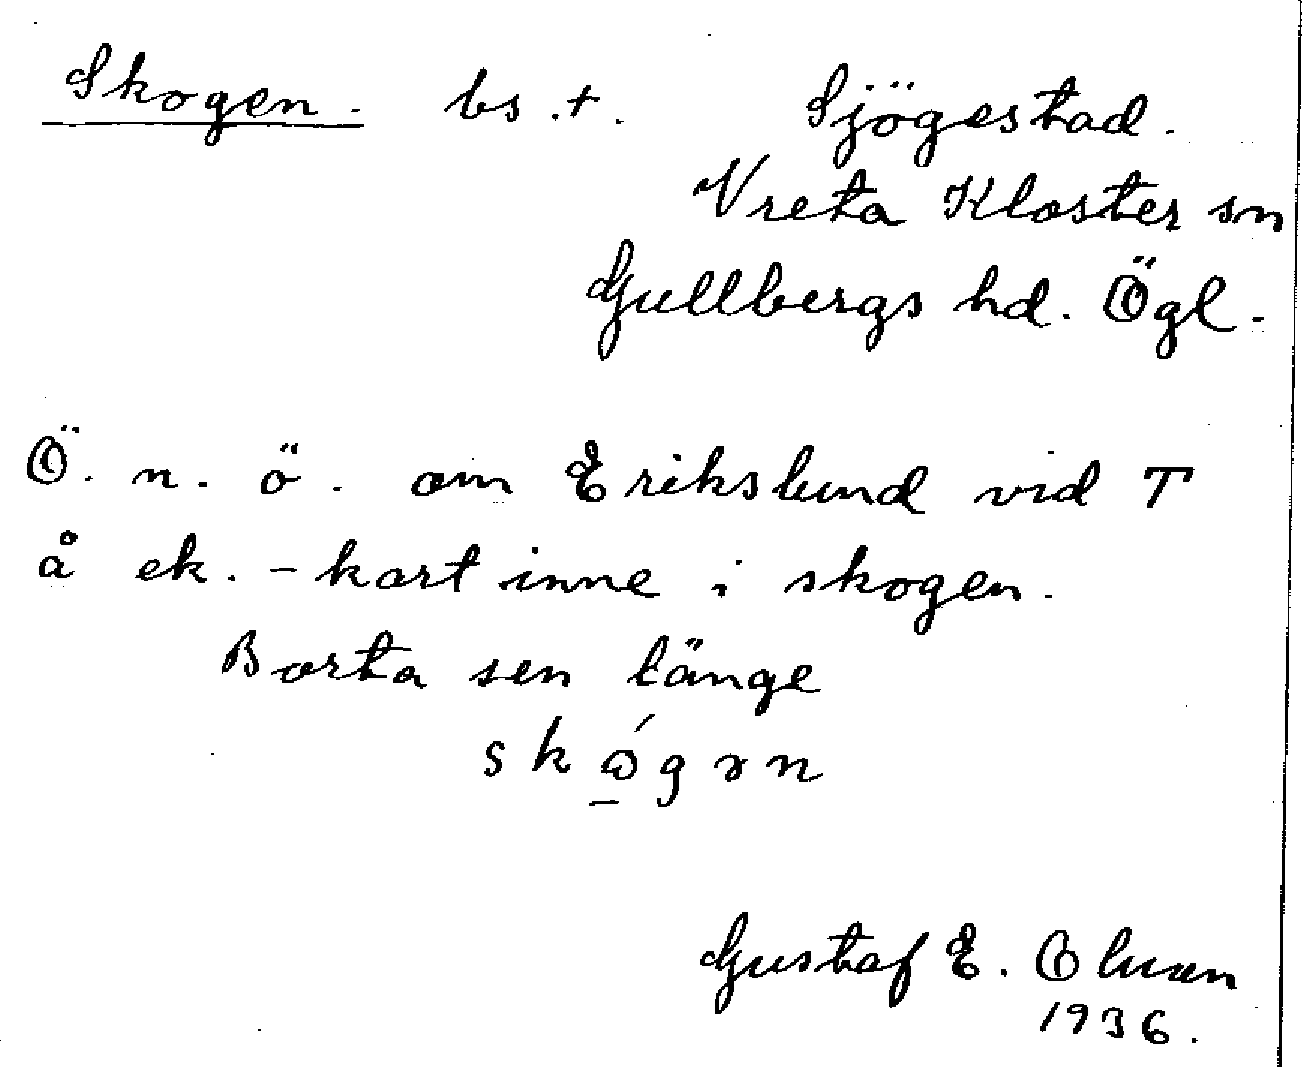 Skogen. bs. +. Sjögestad.
Vreta Kloster sn
Gullbergs hd. Ögl.
Ö. n. ö. om Erikslund vid T
å ek.-kart inne i skogen.
Borta sen länge
skǫ́gən
Gustaf E. Olsson
1936.